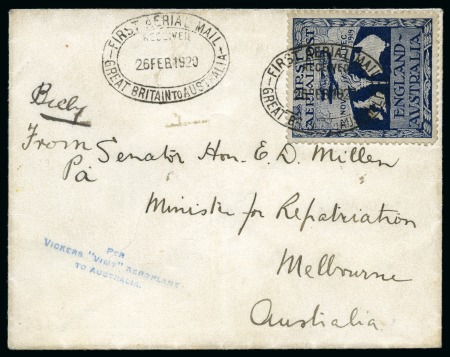 FIRST AERIAL MAIL
RECEIVED
26 FEB 1920
GREAT BRITAIN TO AUSTRALIA
FIRST AERIAL MAIL
RECEIVED
FEB 192
GREAT
FIRST
AERIAL POST
ENGLAND
AUSTRALIA
NOV
From Senator Hon. E. D. Millen
Pa
Minister for Repatriation
Melbourne
Australia
PER
VICKERS "VIMY" AEROPLANE
TO AUSTRALIA.